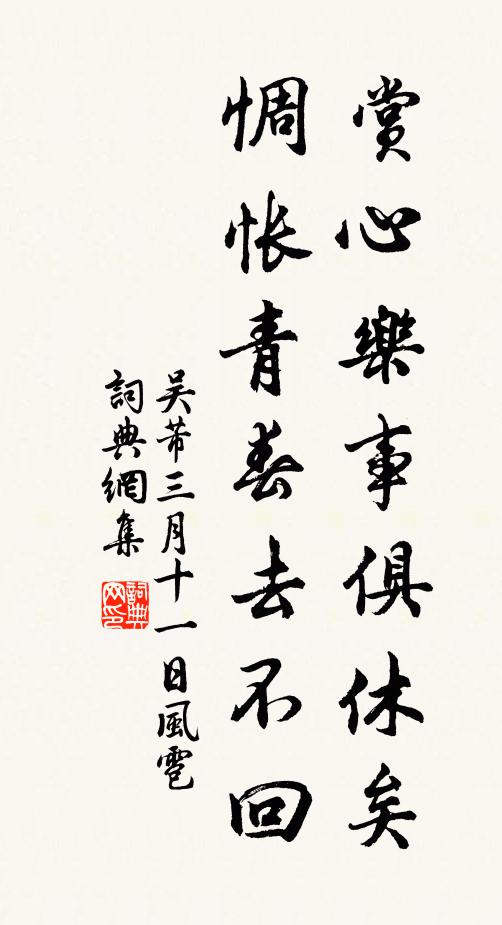 賞心樂事俱休矣
惆悵青春去不回
吳芾三月十一日風雹
詞典網集
詞典網印